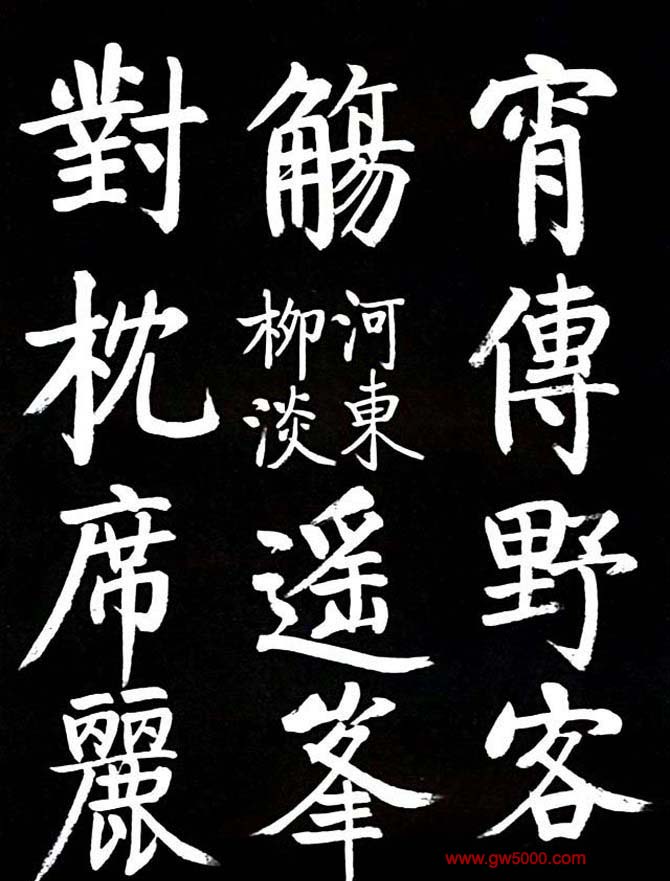 宵傳野客
觴
河東
柳淡
遥峯
對枕席麗
www.gw5000.com